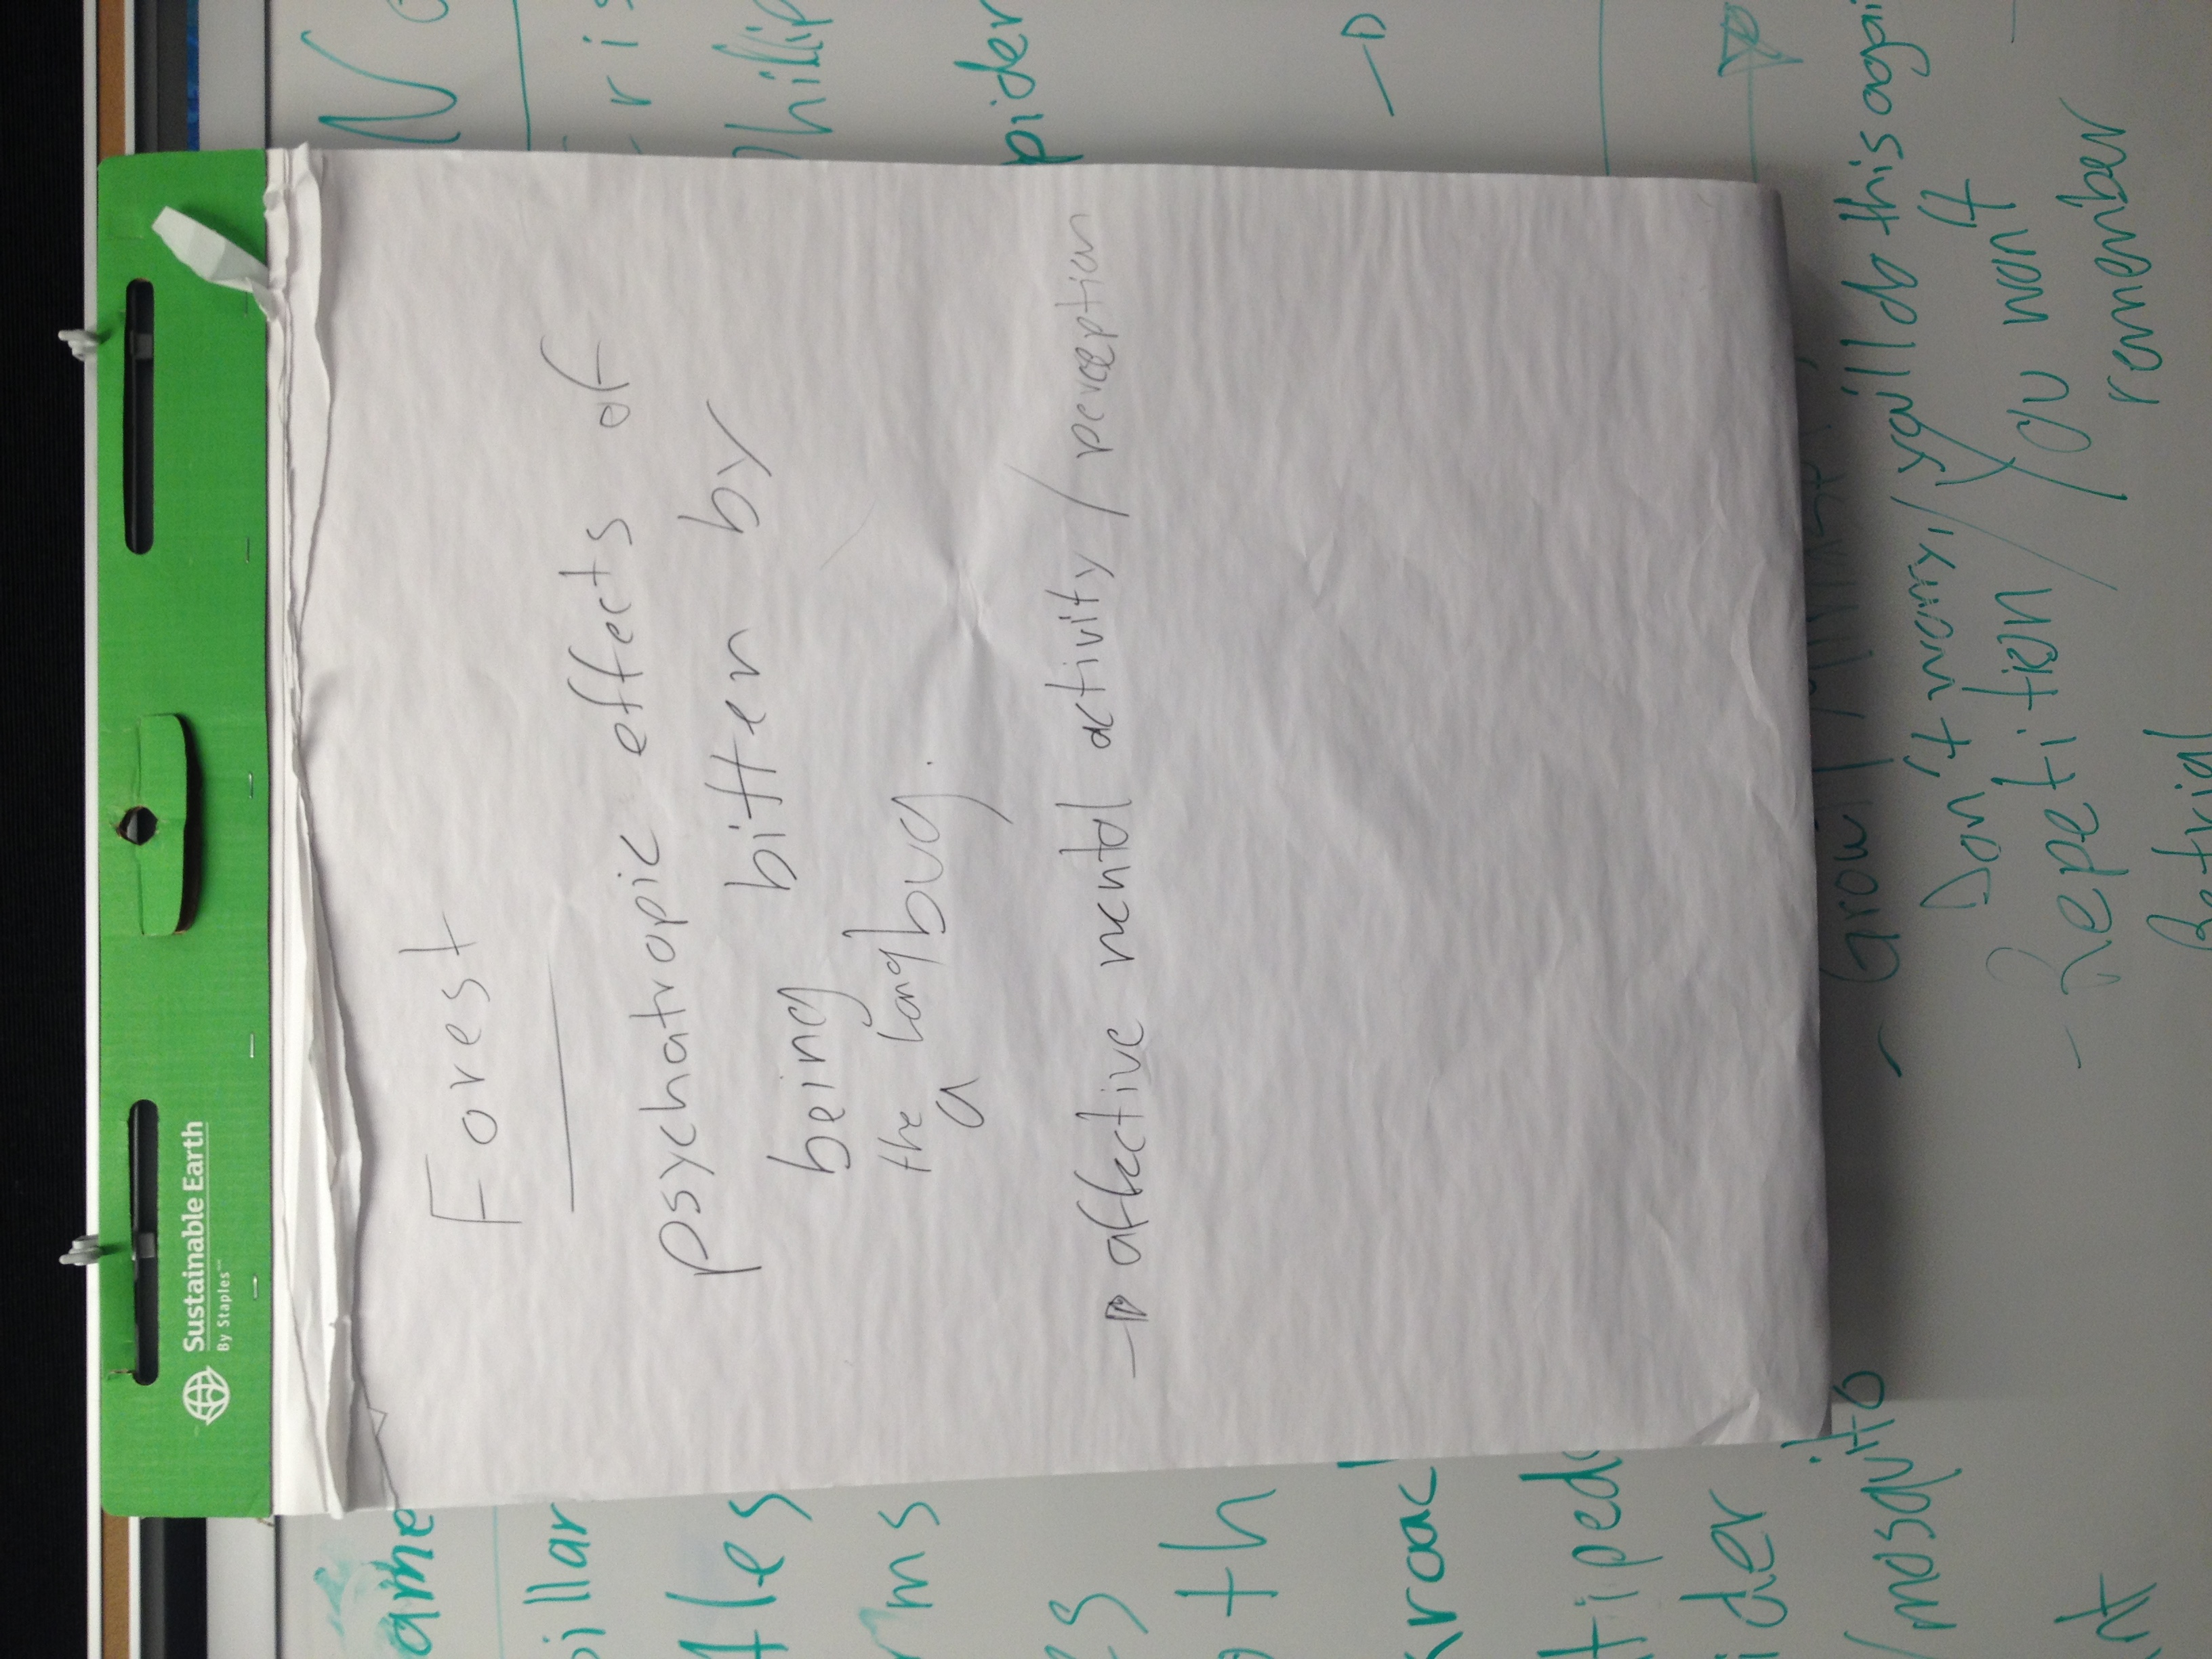 Sustainable Earth
By Staples
Forest
psychatropic effects of
being bitten by
the long bug.
a
→ affective mental activity / perception
ame
illar
tles
rms
es
oth
kroac
tiped
ider
/mosquito
nt
N
ris
hillip
pider
- Growth Mindset
Don't worry, / you'll do this agai
- Repetition / You won't
remember
Retrial